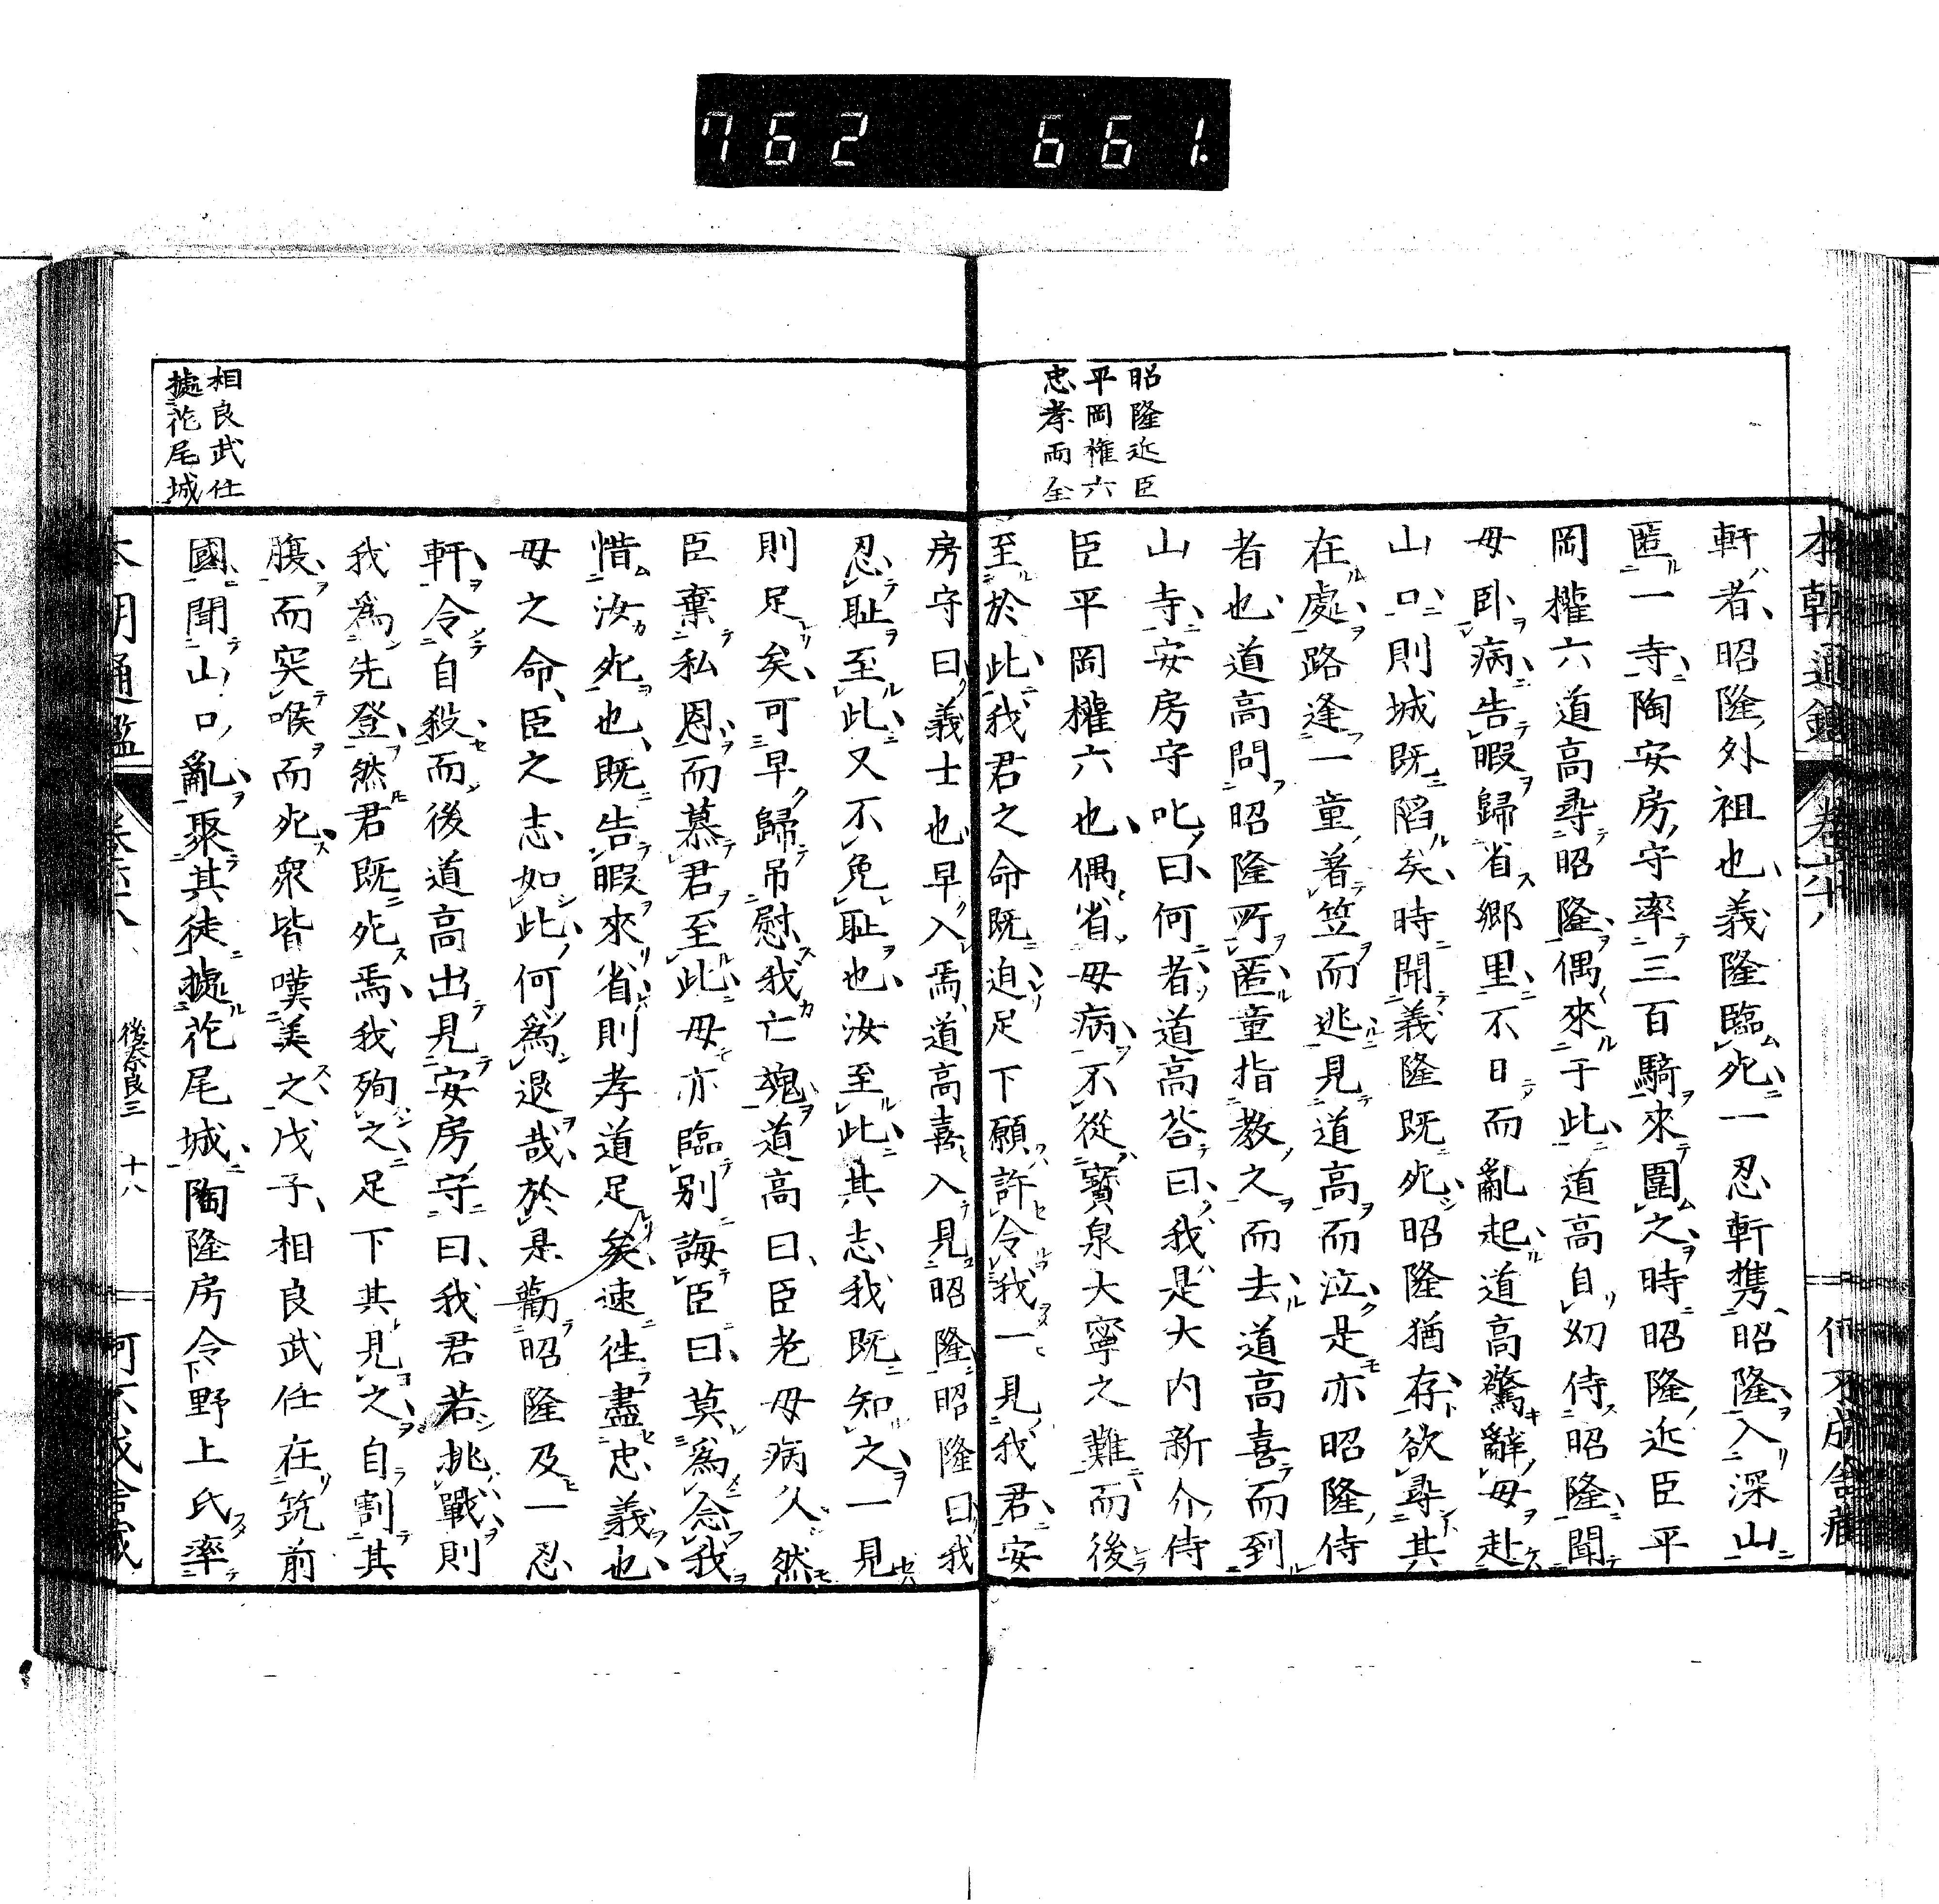 762 661.
本朝通鑑 卷六十八
昭隆近臣
平岡権六
忠孝両全
軒者昭隆外祖也義隆臨死一忍軒携昭隆入深山
匿一寺陶安房守率三百騎來圍之時昭隆近臣平
岡權六道高尋昭隆偶來于此道高自幼侍昭隆聞
母臥病告暇歸省郷里不日而亂起道高驚辭母赴
山口則城既陷矣時聞義隆既死昭隆猶存欲尋其
在處路逢一童著笠而逃見道高而泣是亦昭隆侍
者也道高問昭隆所匿童指教之而去道高喜而到
山寺安房守叱曰何者道高荅曰我是大内新介侍
臣平岡權六也偶省母病不從寳泉大寧之難而後
至於此我君之命既迫足下願許令我一見我君安
房守曰義士也早入焉道高喜入見昭隆昭隆曰我
忍耻至此又不免耻也汝至此其志我既知之一見
則足矣可早歸吊慰我亡魂道高曰臣老母病久然
臣棄私恩而慕君至此母亦臨别誨臣曰莫為念我
惜汝死也既告暇來省則孝道足矣速徃盡忠義也
母之命臣之志如此何為退哉於是勸昭隆及一忍
軒令自殺而後道高出見安房守曰我君若挑戰則
我為先登然君既死焉我殉之足下其見之自割其
腹而突喉而死衆皆嘆美之戊子相良武任在筑前
國聞山口亂聚其徒據花尾城陶隆房令野上氏率
相良武任
據花尾城
後奈良三 十八